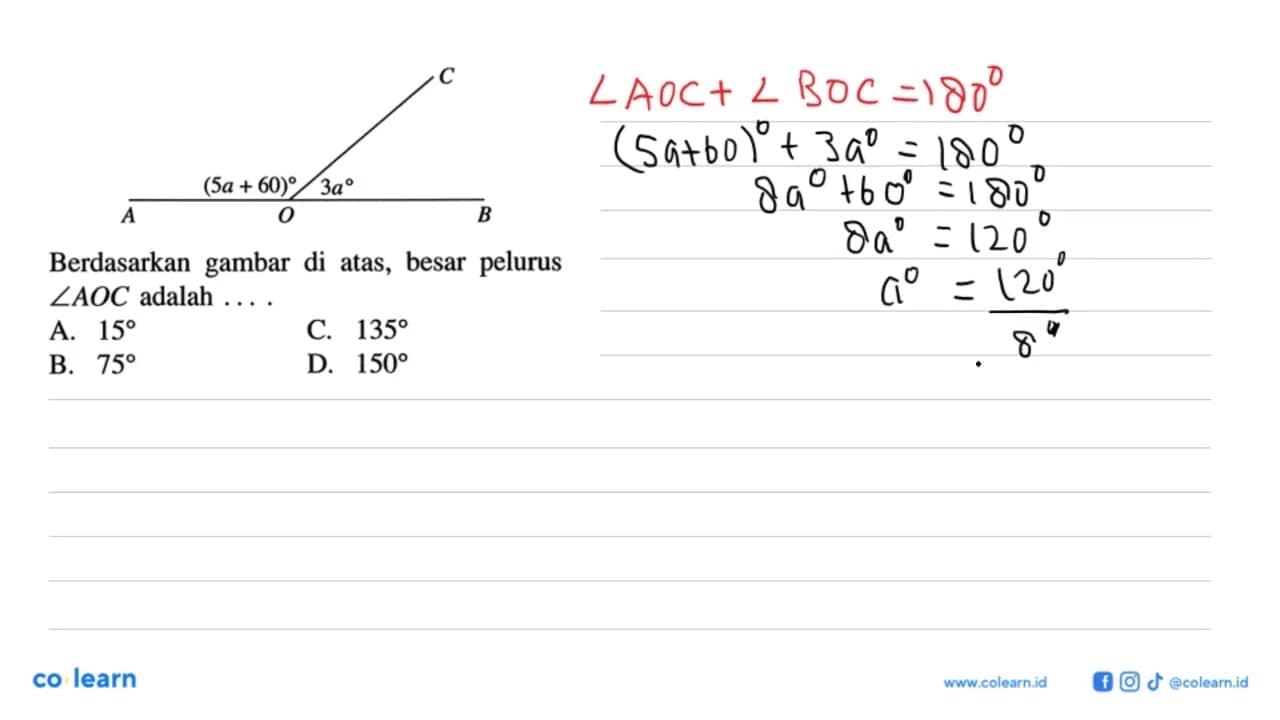 C
(5a + 60)° 3a°
A O B
Berdasarkan gambar di atas, besar pelurus
∠AOC adalah . . . .
A. 15° C. 135°
B. 75° D. 150°
∠AOC + ∠BOC = 180°
(5a+60)° + 3a° = 180°
8a° + 60° = 180°
8a° = 120°
a° = 120°
8
co learn
www.colearn.id
@colearn.id